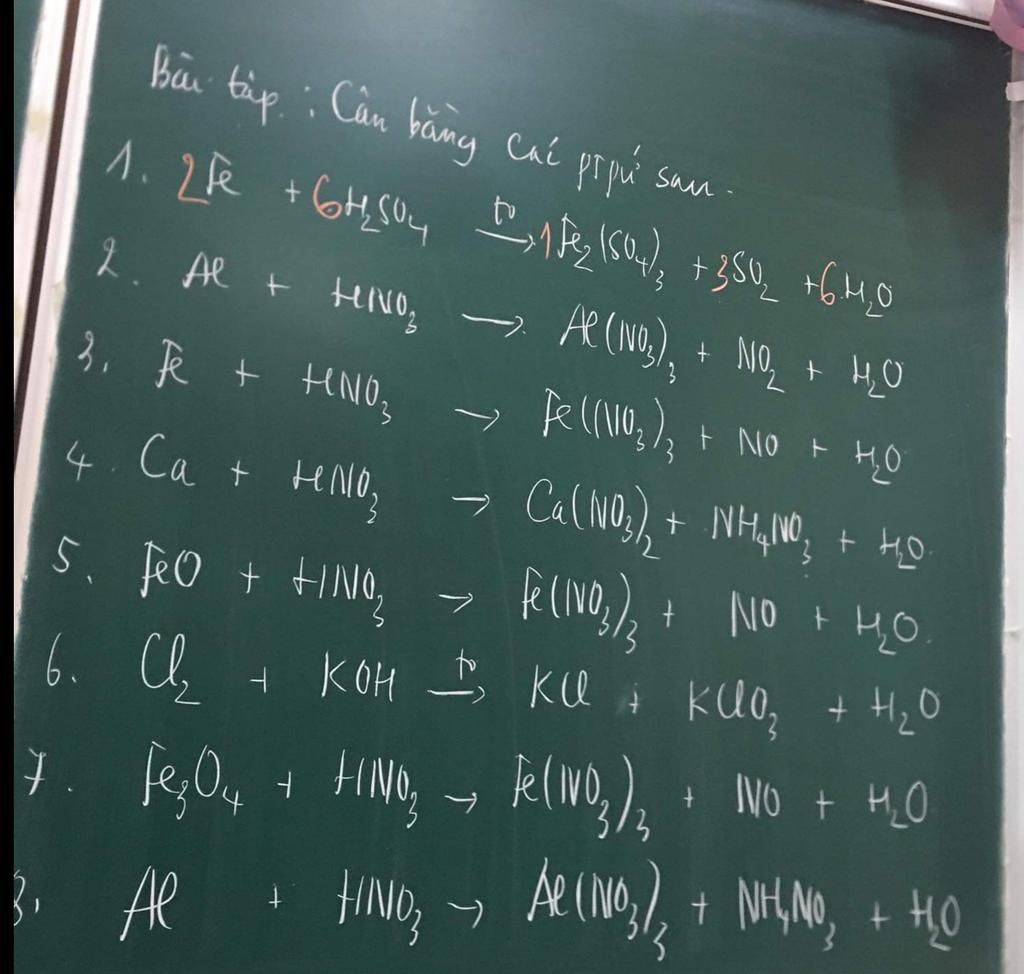 Bài tập : Cân bằng các ptpứ sau.
1. 2Fe + 6H₂SO₄ t⁰→ 1Fe₂(SO₄)₃ + 3SO₂ + 6H₂O
2. Al + HNO₃ → Al(NO₃)₃ + NO₂ + H₂O
3. Fe + HNO₃ → Fe(NO₃)₃ + NO + H₂O
4. Ca + HNO₃ → Ca(NO₃)₂ + NH₄NO₃ + H₂O.
5. FeO + HNO₃ → Fe(NO₃)₃ + NO + H₂O.
6. Cl₂ + KOH t⁰→ KCl + KClO₃ + H₂O
7. Fe₃O₄ + HNO₃ → Fe(NO₃)₃ + NO + H₂O
8. Al + HNO₃ → Al(NO₃)₃ + NH₄NO₃ + H₂O